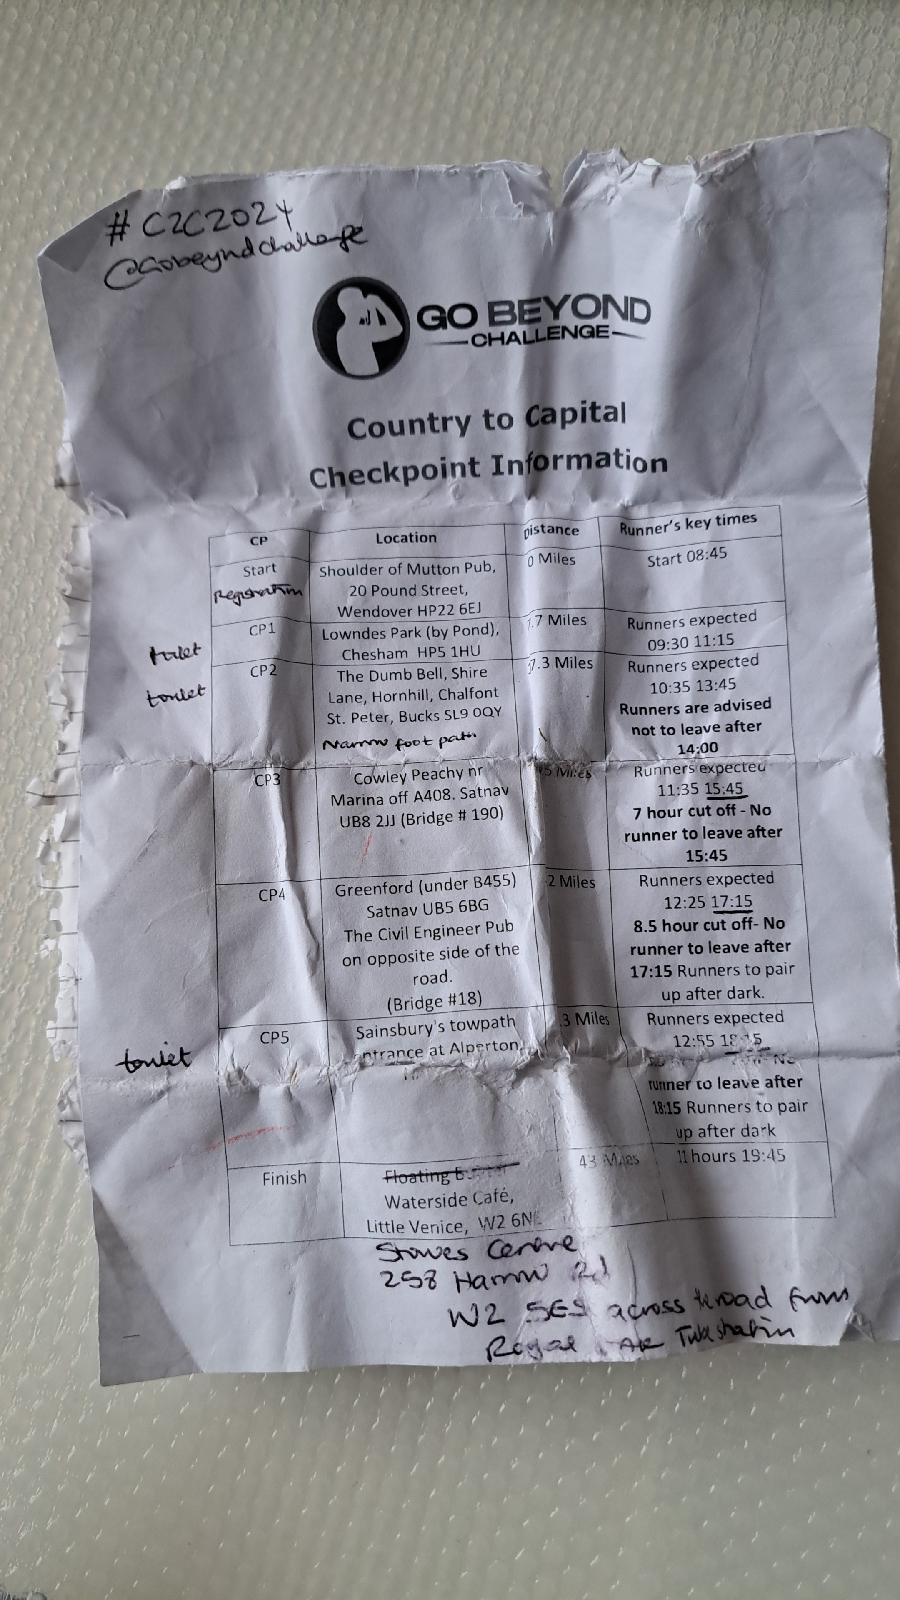 # C2C2024
@Gobeyndchallenge
GO BEYOND
CHALLENGE
Country to Capital
Checkpoint Information
CP Location Distance Runner's key times
Start Shoulder of Mutton Pub, 0 Miles Start 08:45
Registration 20 Pound Street,
Wendover HP22 6EJ
CP1 Lowndes Park (by Pond), .7 Miles Runners expected
toilet Chesham HP5 1HU 09:30 11:15
CP2 The Dumb Bell, Shire 7.3 Miles Runners expected
toilet Lane, Hornhill, Chalfont 10:35 13:45
St. Peter, Bucks SL9 0QY Runners are advised
Narrow foot path not to leave after
14:00
CP3 Cowley Peachy nr Miles Runners expected
Marina off A408. Satnav 11:35 15:45
UB8 2JJ (Bridge # 190) 7 hour cut off - No
runner to leave after
15:45
CP4 Greenford (under B455) 2 Miles Runners expected
Satnav UB5 6BG 12:25 17:15
The Civil Engineer Pub 8.5 hour cut off- No
on opposite side of the runner to leave after
road. 17:15 Runners to pair
(Bridge #18) up after dark.
CP5 Sainsbury's towpath .3 Miles Runners expected
toilet entrance at Alperton, 12:55 18:15
No
runner to leave after
18:15 Runners to pair
up after dark
Finish Floating 43 Miles 11 hours 19:45
Waterside Café,
Little Venice, W2 6N
Stowes Centre
258 Harrow Rd
W2 5ES across the road from
Royal Oak Tube station